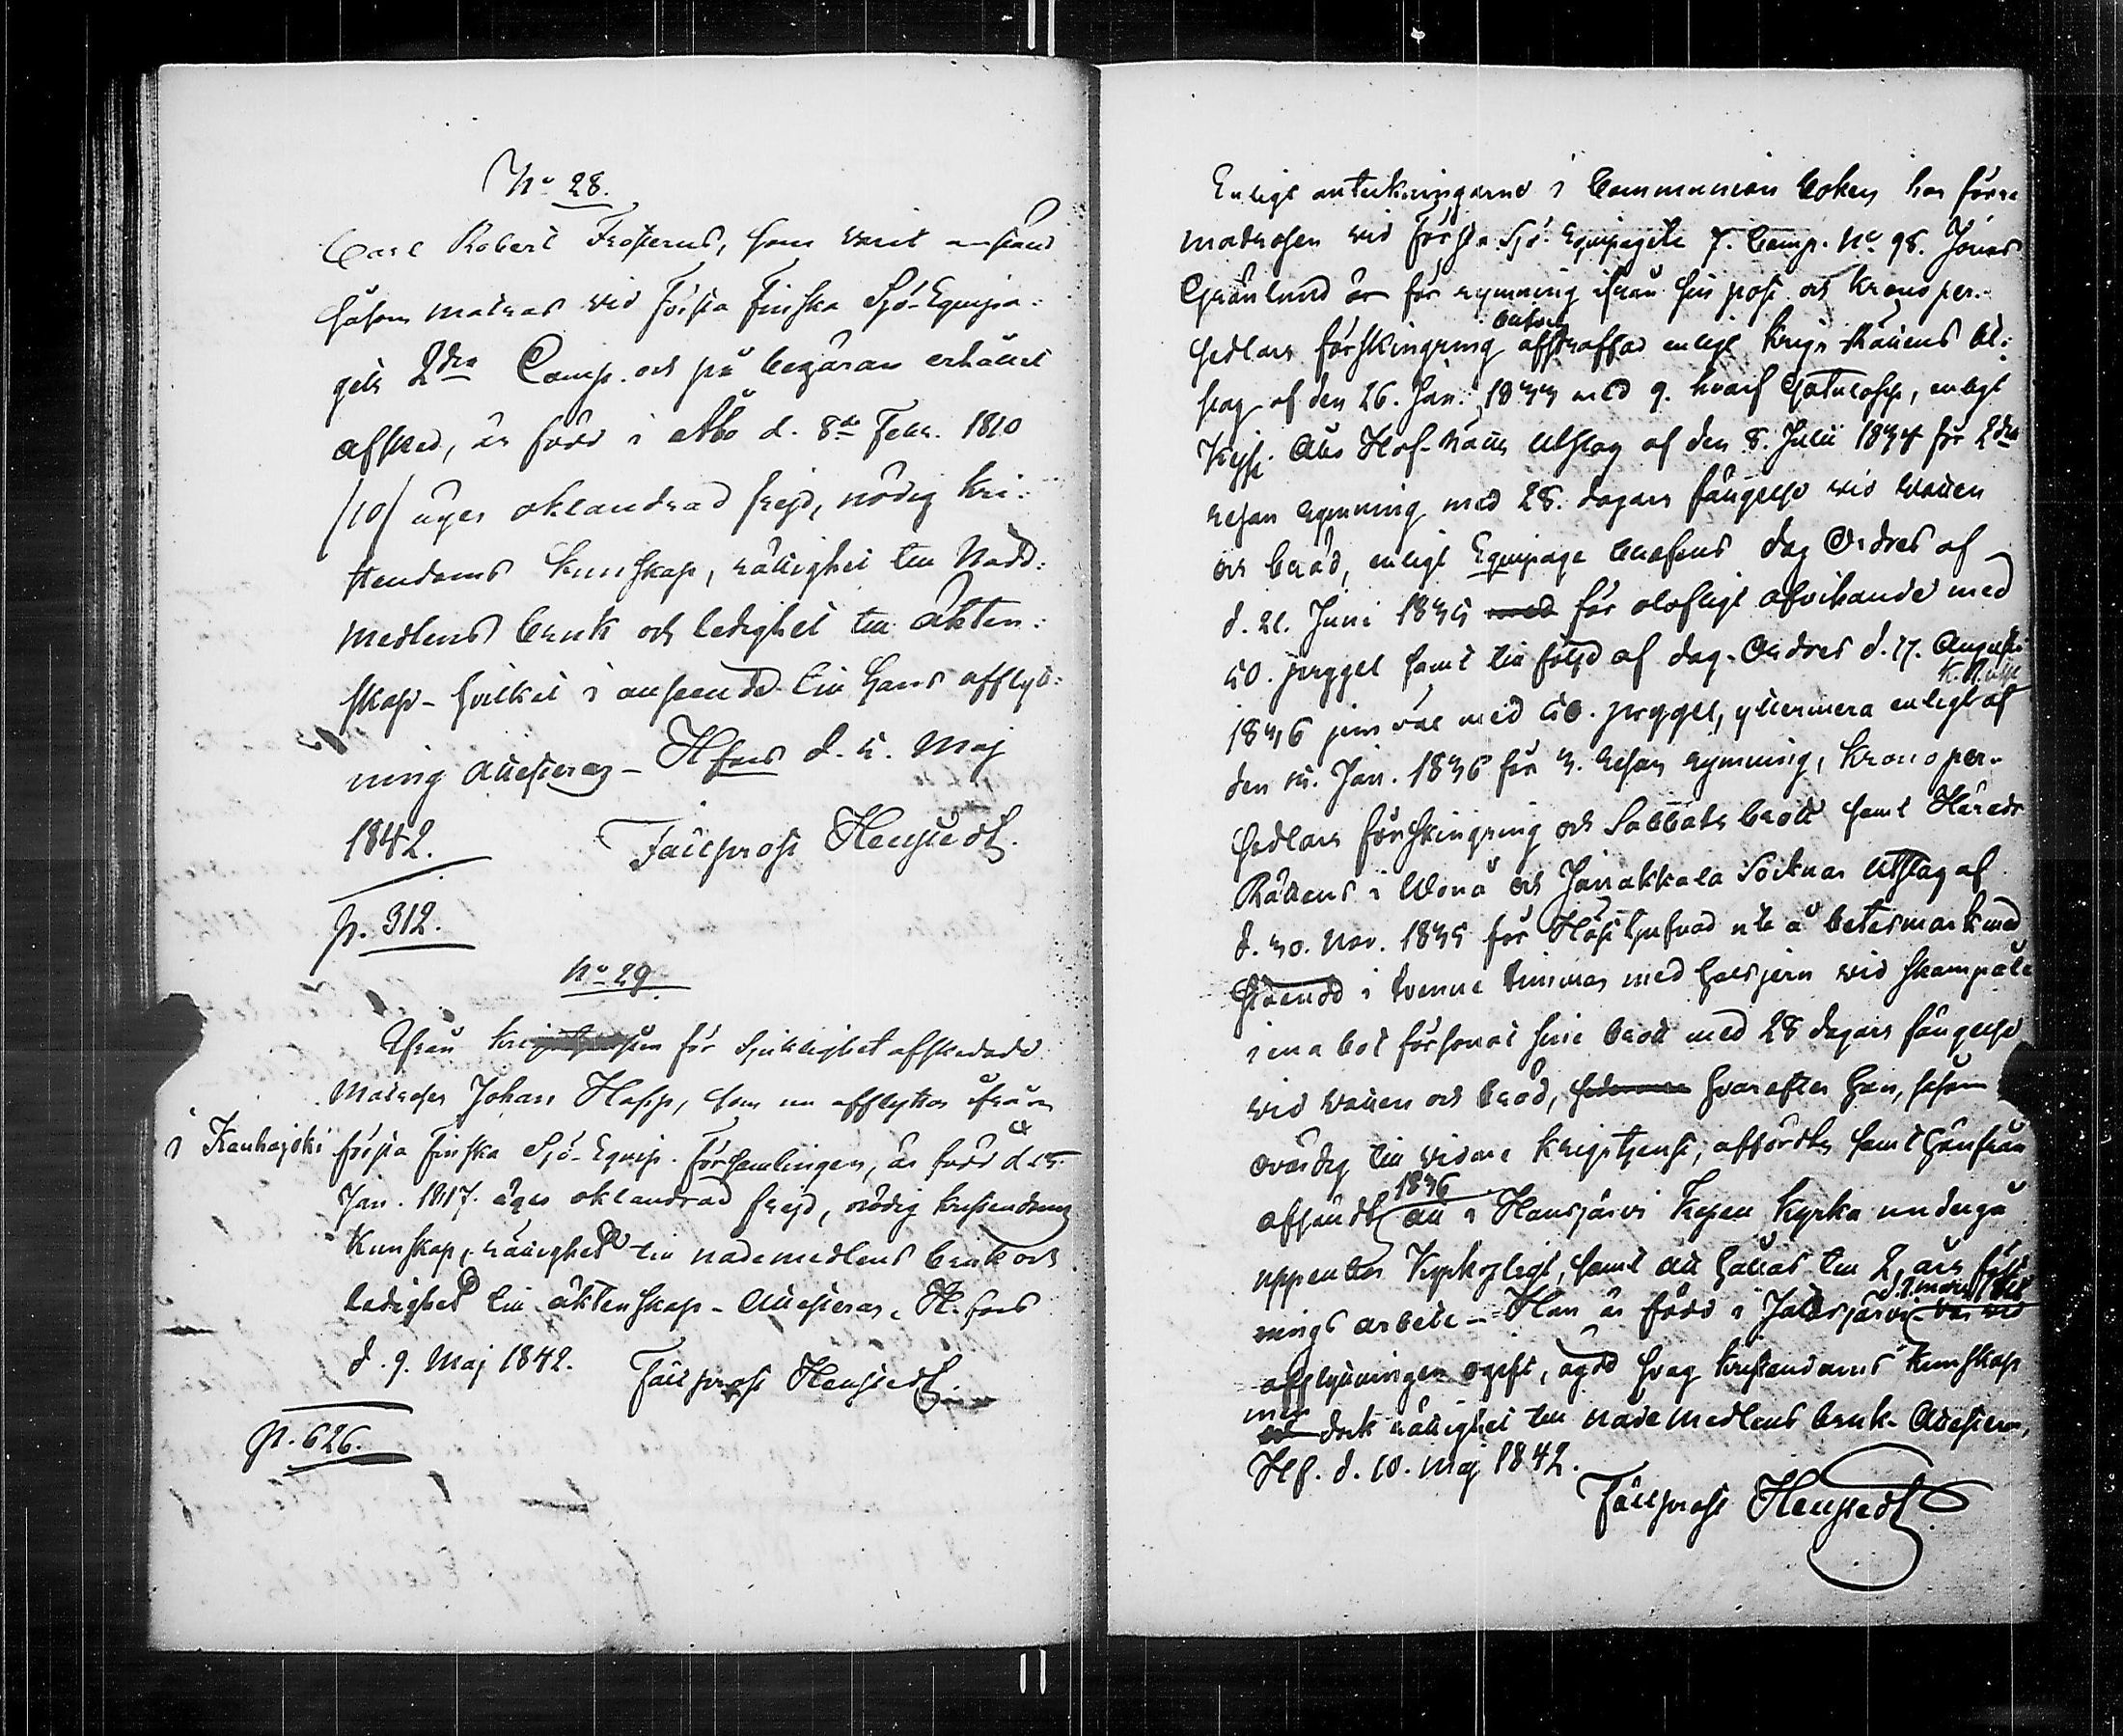 No 28.
Carl Robert Frosterus, som varit anstäld
såsom matros vid Första Finska Sjö-Equipa-
gets 2dra Comp. och på begäran erhållit
afsked, är född i Åbo d. 8de Febr. 1810
/10/ äger oklandrad frejd, nödig kri-
stendoms kunskap, rättighet till Nadd-
medlens bruk och ledighet till äkten-
skap – hvilket i anseende till hans afflytt-
ning attesteras – Hfors d. 5. Maj
1842. Fältprost Henstedt.
p. 312.
No 29.
Ifrån för sjuklighet afskedade
Matrosen Johan Hopp, som nu afflyttar ifrån
i Kauhajoki första Finska Sjö-Equip. Församlingen, är född d.
Jan. 1817. äger oklandrad frejd, nödig kristendoms
kunskap, rättighet till nademedlens bruk och
ledighet till äktenskap – Attesteras, H.fors
d. 9. Maj 1842. Fältprost Henstedt.
p. 626.
Enligt anteckningarne i Communion boken har förre
matrosen vid Första Sjö-Equipagets 7. Comp. No. 98. Jonas
Grönlund för rymning ifrån sin post och krono per-
sedlars förskingring afstraffad enligt Krigs-Rättens ut-
slag af den 26. Jan. 1833 med 9. hvarf Gatulopp, enligt
Kejs. Åbo Hof-Rätts Utslag af den 8. Julii 1834 för 2dra
resan rymning med 28. dagars fängelse vid vatten
och bröd, enligt Equipage Chefens dag Ordres af
d. 21. Juni 1835 med för olofligt afvikande med
50. prygel samt till följd af dag-Ordres d. 17. Augusti
1836 jemväl med 50. prygel, yttermera enligt af
den Jan. 1836 för 3. resan rymning, krono per-
sedlars förskingring och Sabbats brott samt Härads
Rättens i Wånå och Janakkala Socknar Utslag af
d. 30. Nov. 1835 för Häst tjufnad ute å betesmark med
stående i tvenne timmar med halsjern vid skampåle
i ena bot försonat sine brott med 28 dagars fängelse
vid vatten och bröd, hvarefter han, såsom
ovärdig till vidare krigstjenst, affördes samt
afsändt 1836 att i Hausjärvi Kyrka undergå
uppenbar Kyrkoplikt, samt att hållas till 2 års fäst-
nings arbete – Han är född i Jalasjärvi var vid
afflyttningen ogift, ägde svag kristendoms kunskap
men dock rättighet till nademedlens bruk – Attesteras,
Hf. d. 10. Maj 1842.
Fältprost Henstedt